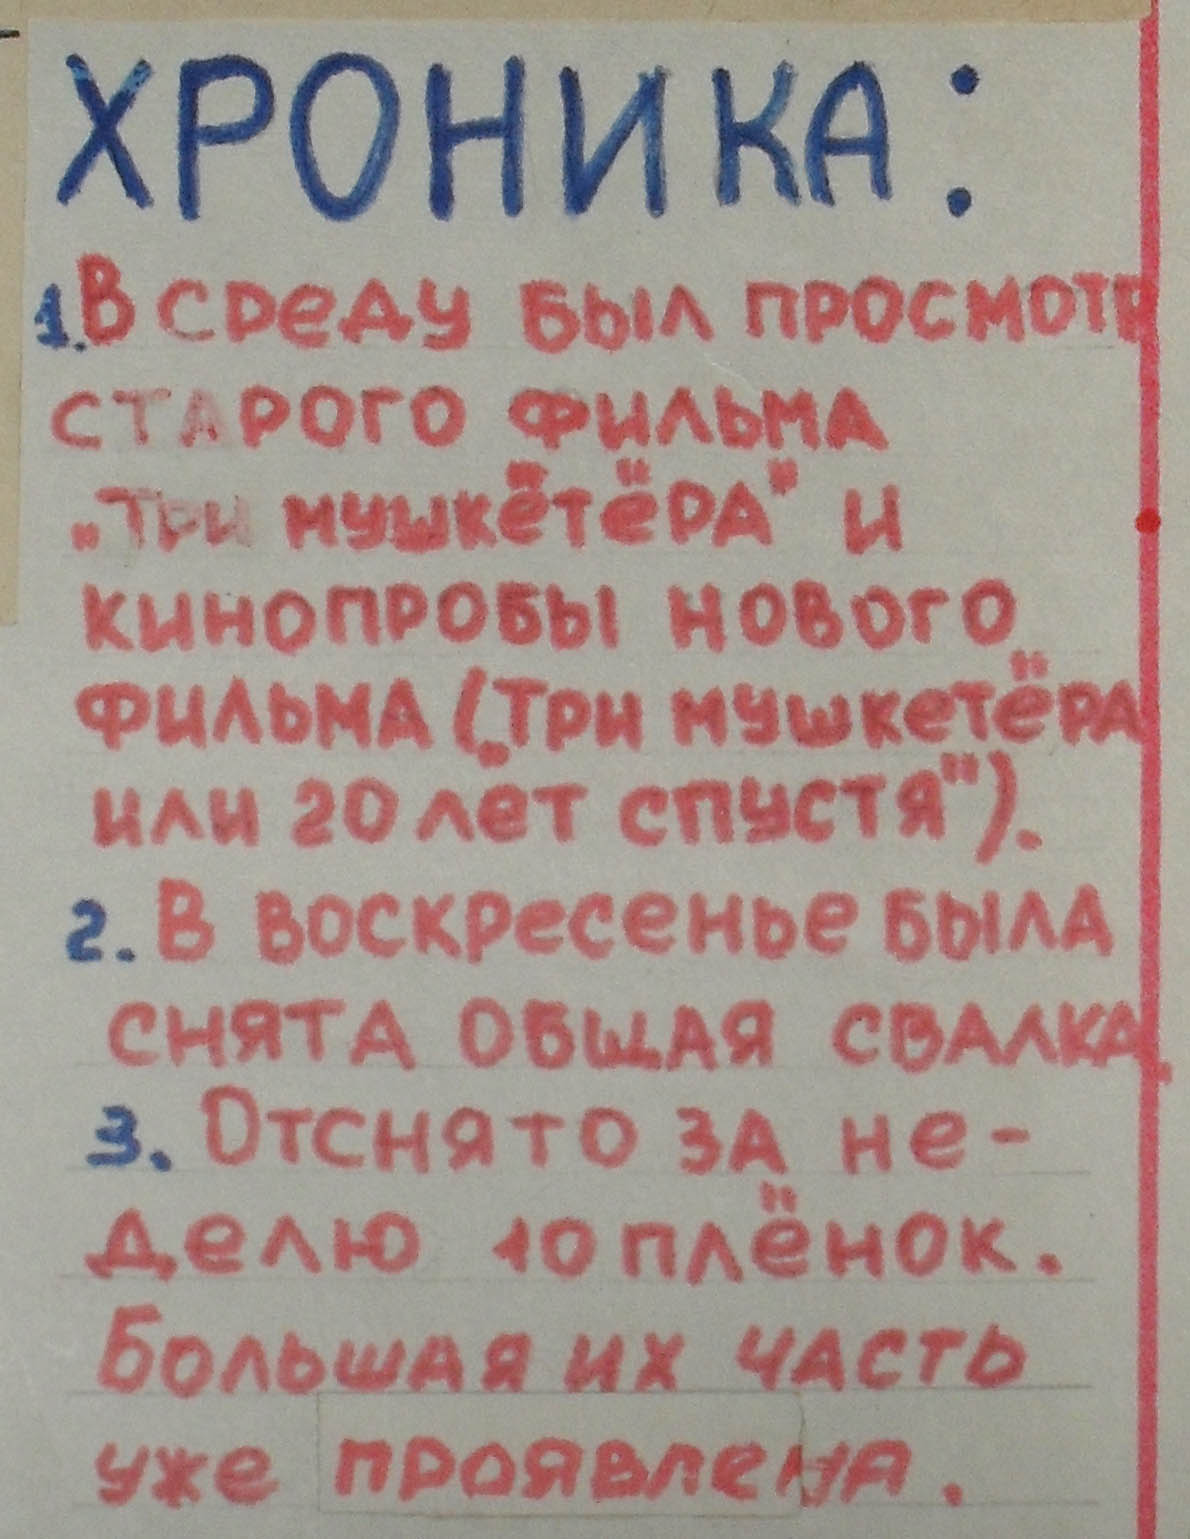 ХРОНИКА:
1. В среду был просмотр
старого фильма
„Три мушкётёра" и
кинопробы нового
фильма („Три мушкетёра
или 20 лет спустя").
2. В воскресенье была
снята общая свалка.
3. Отснято за не-
делю 10 плёнок.
Большая их часть
уже проявлена.